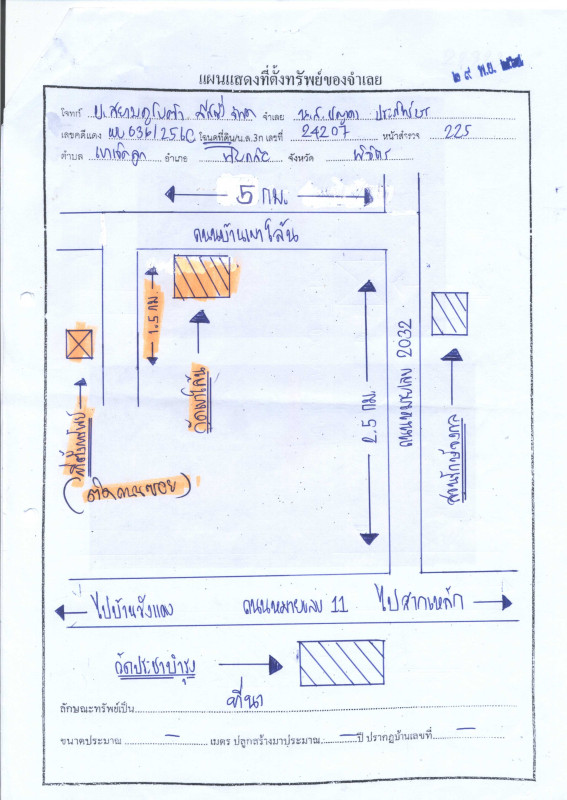 แผนแสดงที่ตั้งทรัพย์ของจำเลย
๒๙ พ.ย. ๒๕
โจทก์ บ.สยามคูโบต้า ลีสซิ่ง จำกัด จำเลย น.ส. ประสิทธิ์
เลขคดีแดง ผบ 636/256 โฉนดที่ดิน/น.ส.3ก เลขที่ 24207 หน้าสำรวจ 225
ตำบล เขาเจ็ดลูก อำเภอ ทับคล้อ จังหวัด พิจิตร
5 กม.
ถนนบ้านเขาโล้น
1.5 กม.
วัดเขาโล้น
ที่ตั้งทรัพย์
(ติดถนนซอย)
2.5 กม.
ถนนหมายเลข 2032
สวนรักษ์
ไปบ้านวังแดง
ถนนหมายเลข 11
ไปสากเหล็ก
วัดประชาบำรุง
ลักษณะทรัพย์เป็น ที่นา
ขนาดประมาณ - เมตร ปลูกสร้างมาประมาณ - ปี ปรากฏบ้านเลขที่ -